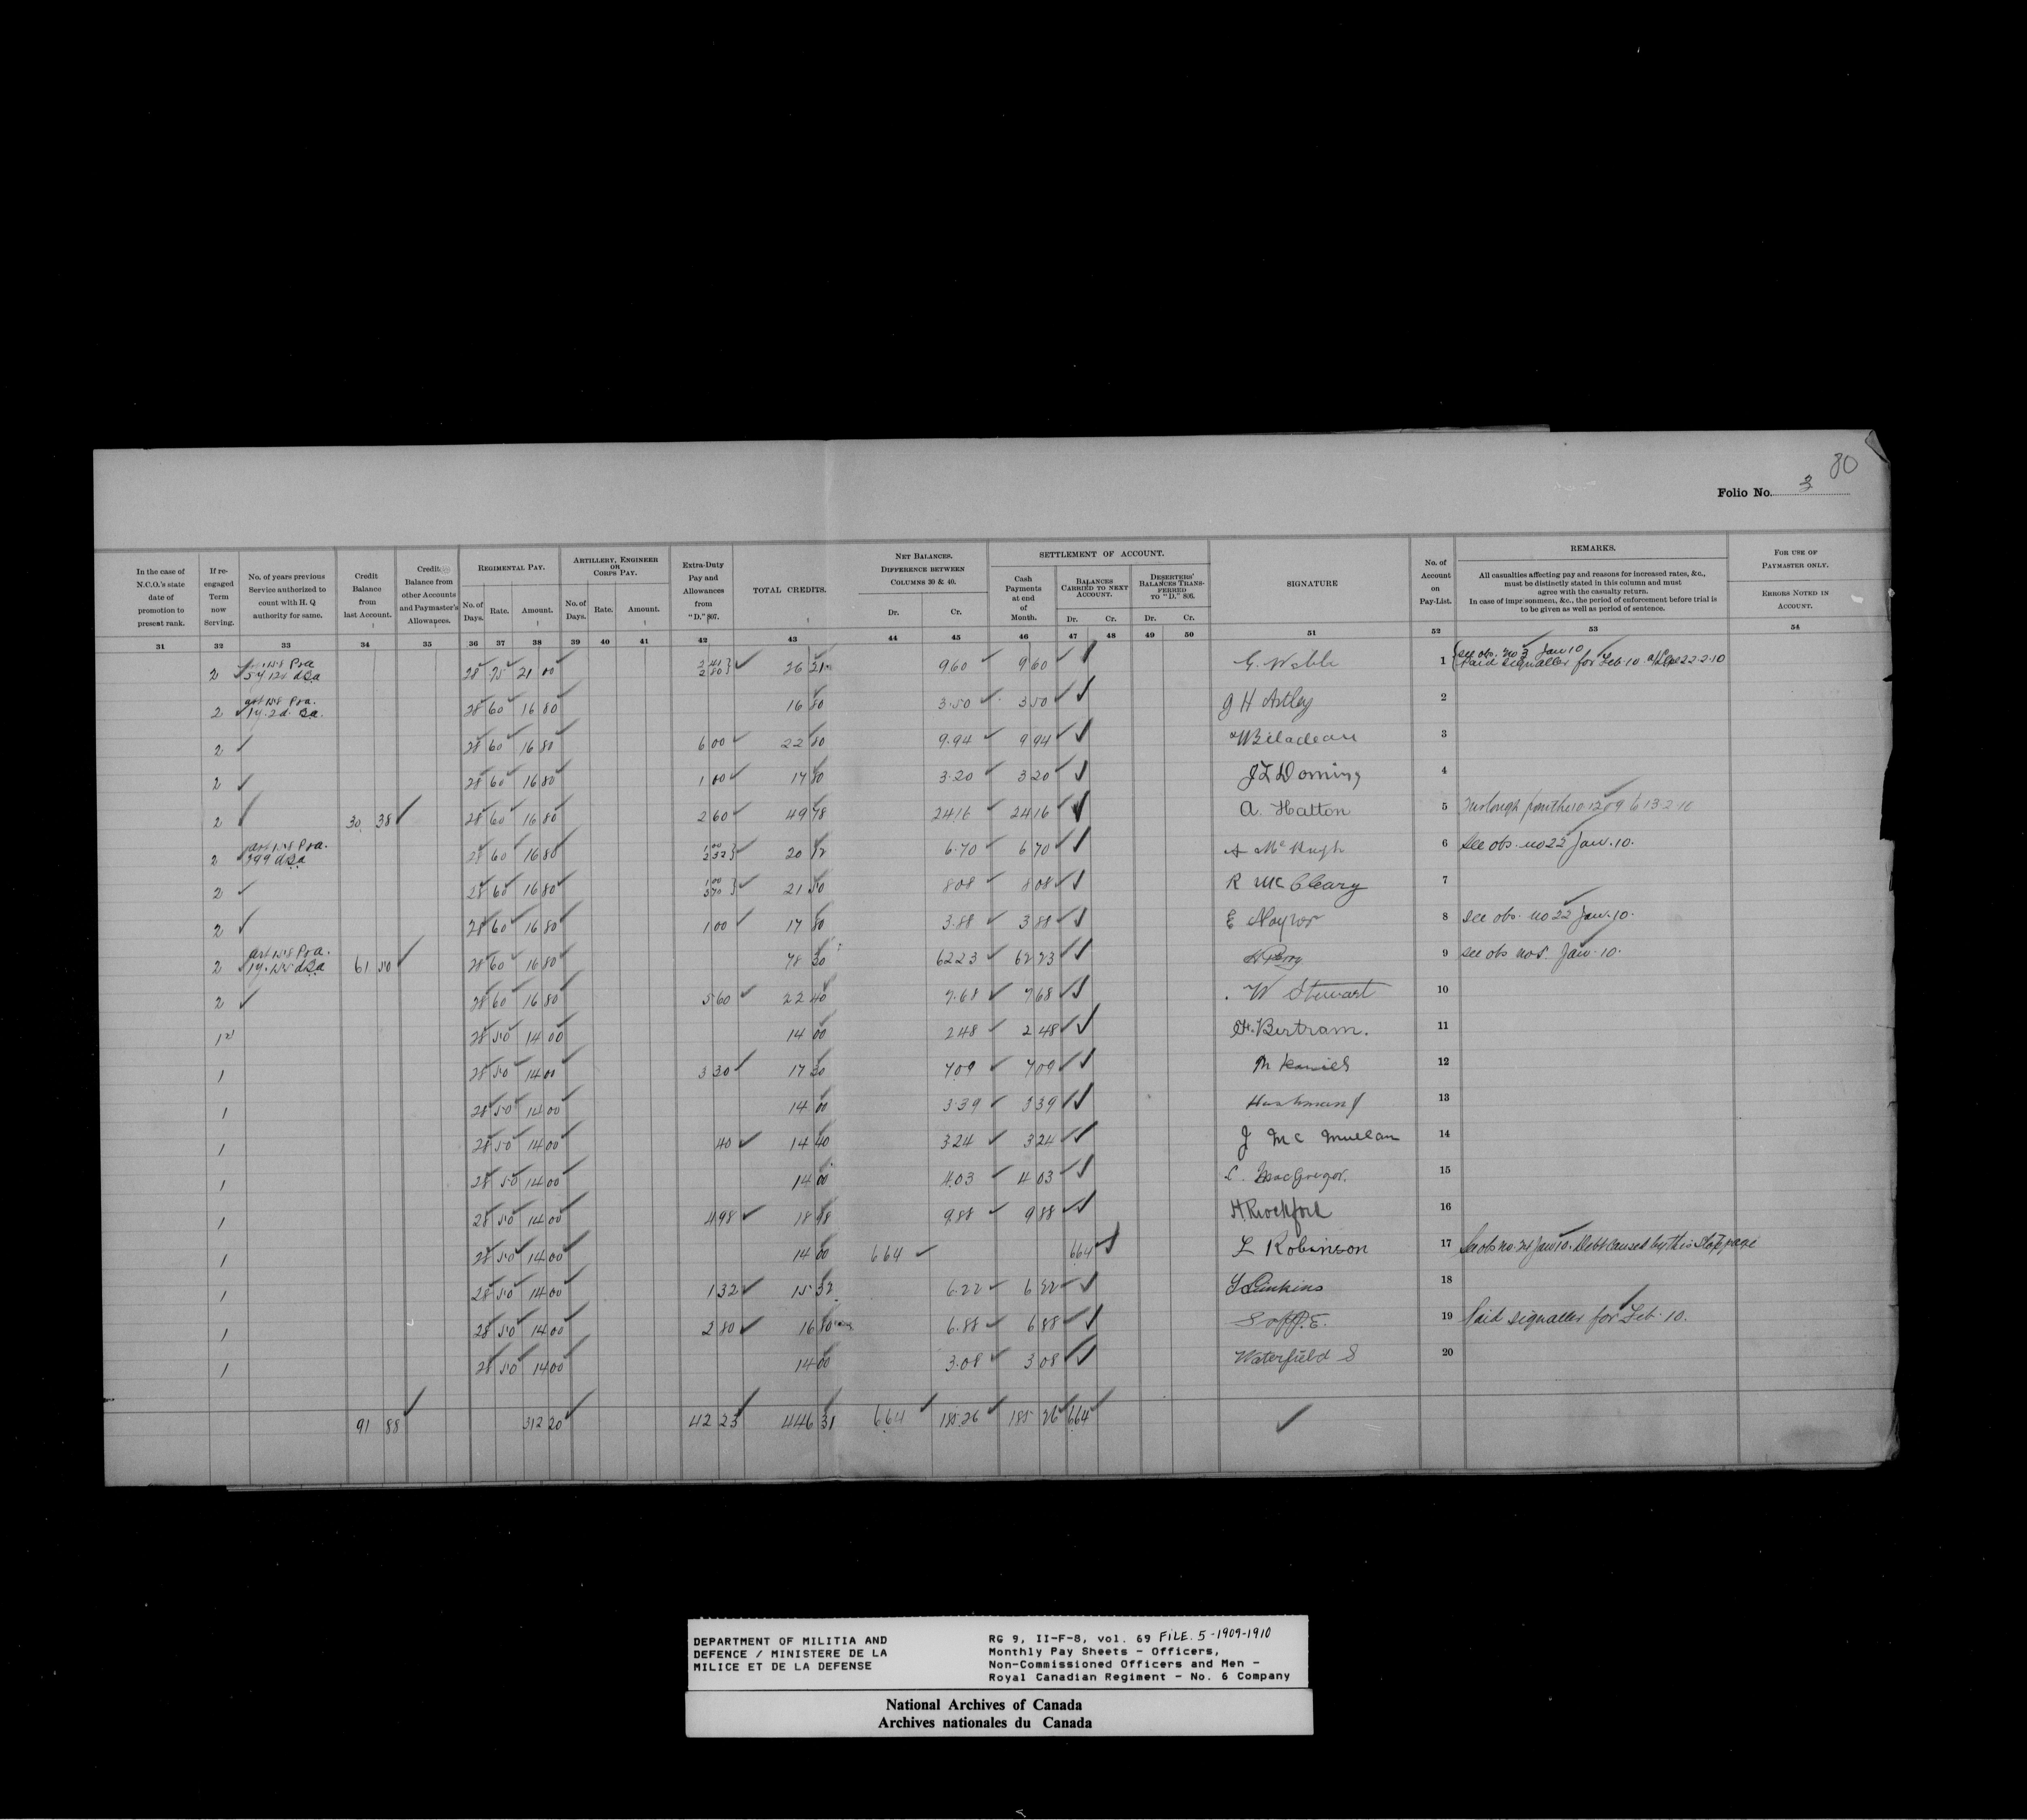 80
Folio No. 3
In the case of N.C.O.'s state date of promotion to present rank.
If re-engaged Term now Serving.
No. of years previous Service authorized to count with H. Q authority for same.
Credit Balance from last Account.
Credit Balance from other Accounts and Paymaster's Allowances.
REGIMENTAL PAY.
No. of Days.
Rate.
Amount.
ARTILLERY, ENGINEER on CORPS PAY.
No. of Days.
Rate.
Amount.
Extra-Duty Pay and Allowances from "D." 807.
TOTAL CREDITS.
NET BALANCES.
DIFFERENCE BETWEEN COLUMNS 30 & 40.
Dr.
Cr.
SETTLEMENT OF ACCOUNT.
Cash Payments at end of Month.
BALANCES CARRIED TO NEXT ACCOUNT.
Dr.
Cr.
DESERTERS' BALANCES TRANSFERRED TO "D." 806.
Dr.
Cr.
SIGNATURE
No. of Account on Pay-List.
REMARKS.
All casualties affecting pay and reasons for increased rates, &c., must be distinctly stated in this column and must agree with the casualty return.
In case of imprisonment, &c., the period of enforcement before trial is to be given as well as period of sentence.
FOR USE OF PAYMASTER ONLY.
ERRORS NOTED IN ACCOUNT.
31 32 33 34 35 36 37 38 39 40 41 42 43 44 45 46 47 48 49 50 51 52 53 54
2 28 75 21 00 2 41 2 80 26 21 9.60 9 60 G. 1 See obs. no 3 Jan 10 Paid signaller for Feb. 10 22.2.10
2 28 60 16 80 16 80 3.50 3 50 J H Astley 2
2 28 60 16 80 6 00 22 80 9.94 9 94 3
2 28 60 16 80 1 00 17 80 3.20 3 20 4
2 30 38 28 60 16 80 2 60 49 78 24 16 24 16 A. Hatton 5 Furlough
2 28 60 16 80 1 00 2 32 20 12 6.70 6 70 A McHugh 6 See obs. no 22 Jan. 10.
2 28 60 16 80 1 00 3 70 21 50 8 08 8 08 R McCleary 7
2 28 60 16 80 1 00 17 80 3.88 3 88 E Naylor 8 See obs. no 22 Jan. 10.
2 61 50 28 60 16 80 78 30 62 23 62 23 9 See obs no 5. Jan. 10.
2 28 60 16 80 5 60 22 40 7.68 7 68 W Stewart 10
1 28 50 14 00 14 00 2 48 2 48 Bertram. 11
1 28 50 14 00 3 30 17 30 7 09 7 09 12
1 28 50 14 00 14 00 3.39 3 39 13
1 28 50 14 00 40 14 40 3.24 3 24 J McMullan 14
1 28 50 14 00 14 00 4.03 4 03 MacGregor. 15
1 28 50 14 00 4 98 18 98 9.88 9 88 H. Rockford 16
1 28 50 14 00 14 00 6 64 6 64 L Robinson 17 See obs no. 24 Jan 10. Debt caused by this Stoppage
1 28 50 14 00 1 32 15 32 6.22 6 22 18
1 28 50 14 00 2 80 16 80 6.88 6 88 19 Paid signaller for Feb. 10.
1 28 50 14 00 14 00 3.08 3 08 Waterfield S 20
91 88 312 20 42 23 446 31 6 64 185.26 185 26 6 64
DEPARTMENT OF MILITIA AND
DEFENCE / MINISTERE DE LA
MILICE ET DE LA DEFENSE
RG 9, II-F-8, vol. 69 FILE. 5-1909-1910
Monthly Pay Sheets - Officers,
Non-Commissioned Officers and Men -
Royal Canadian Regiment - No. 6 Company
National Archives of Canada
Archives nationales du Canada